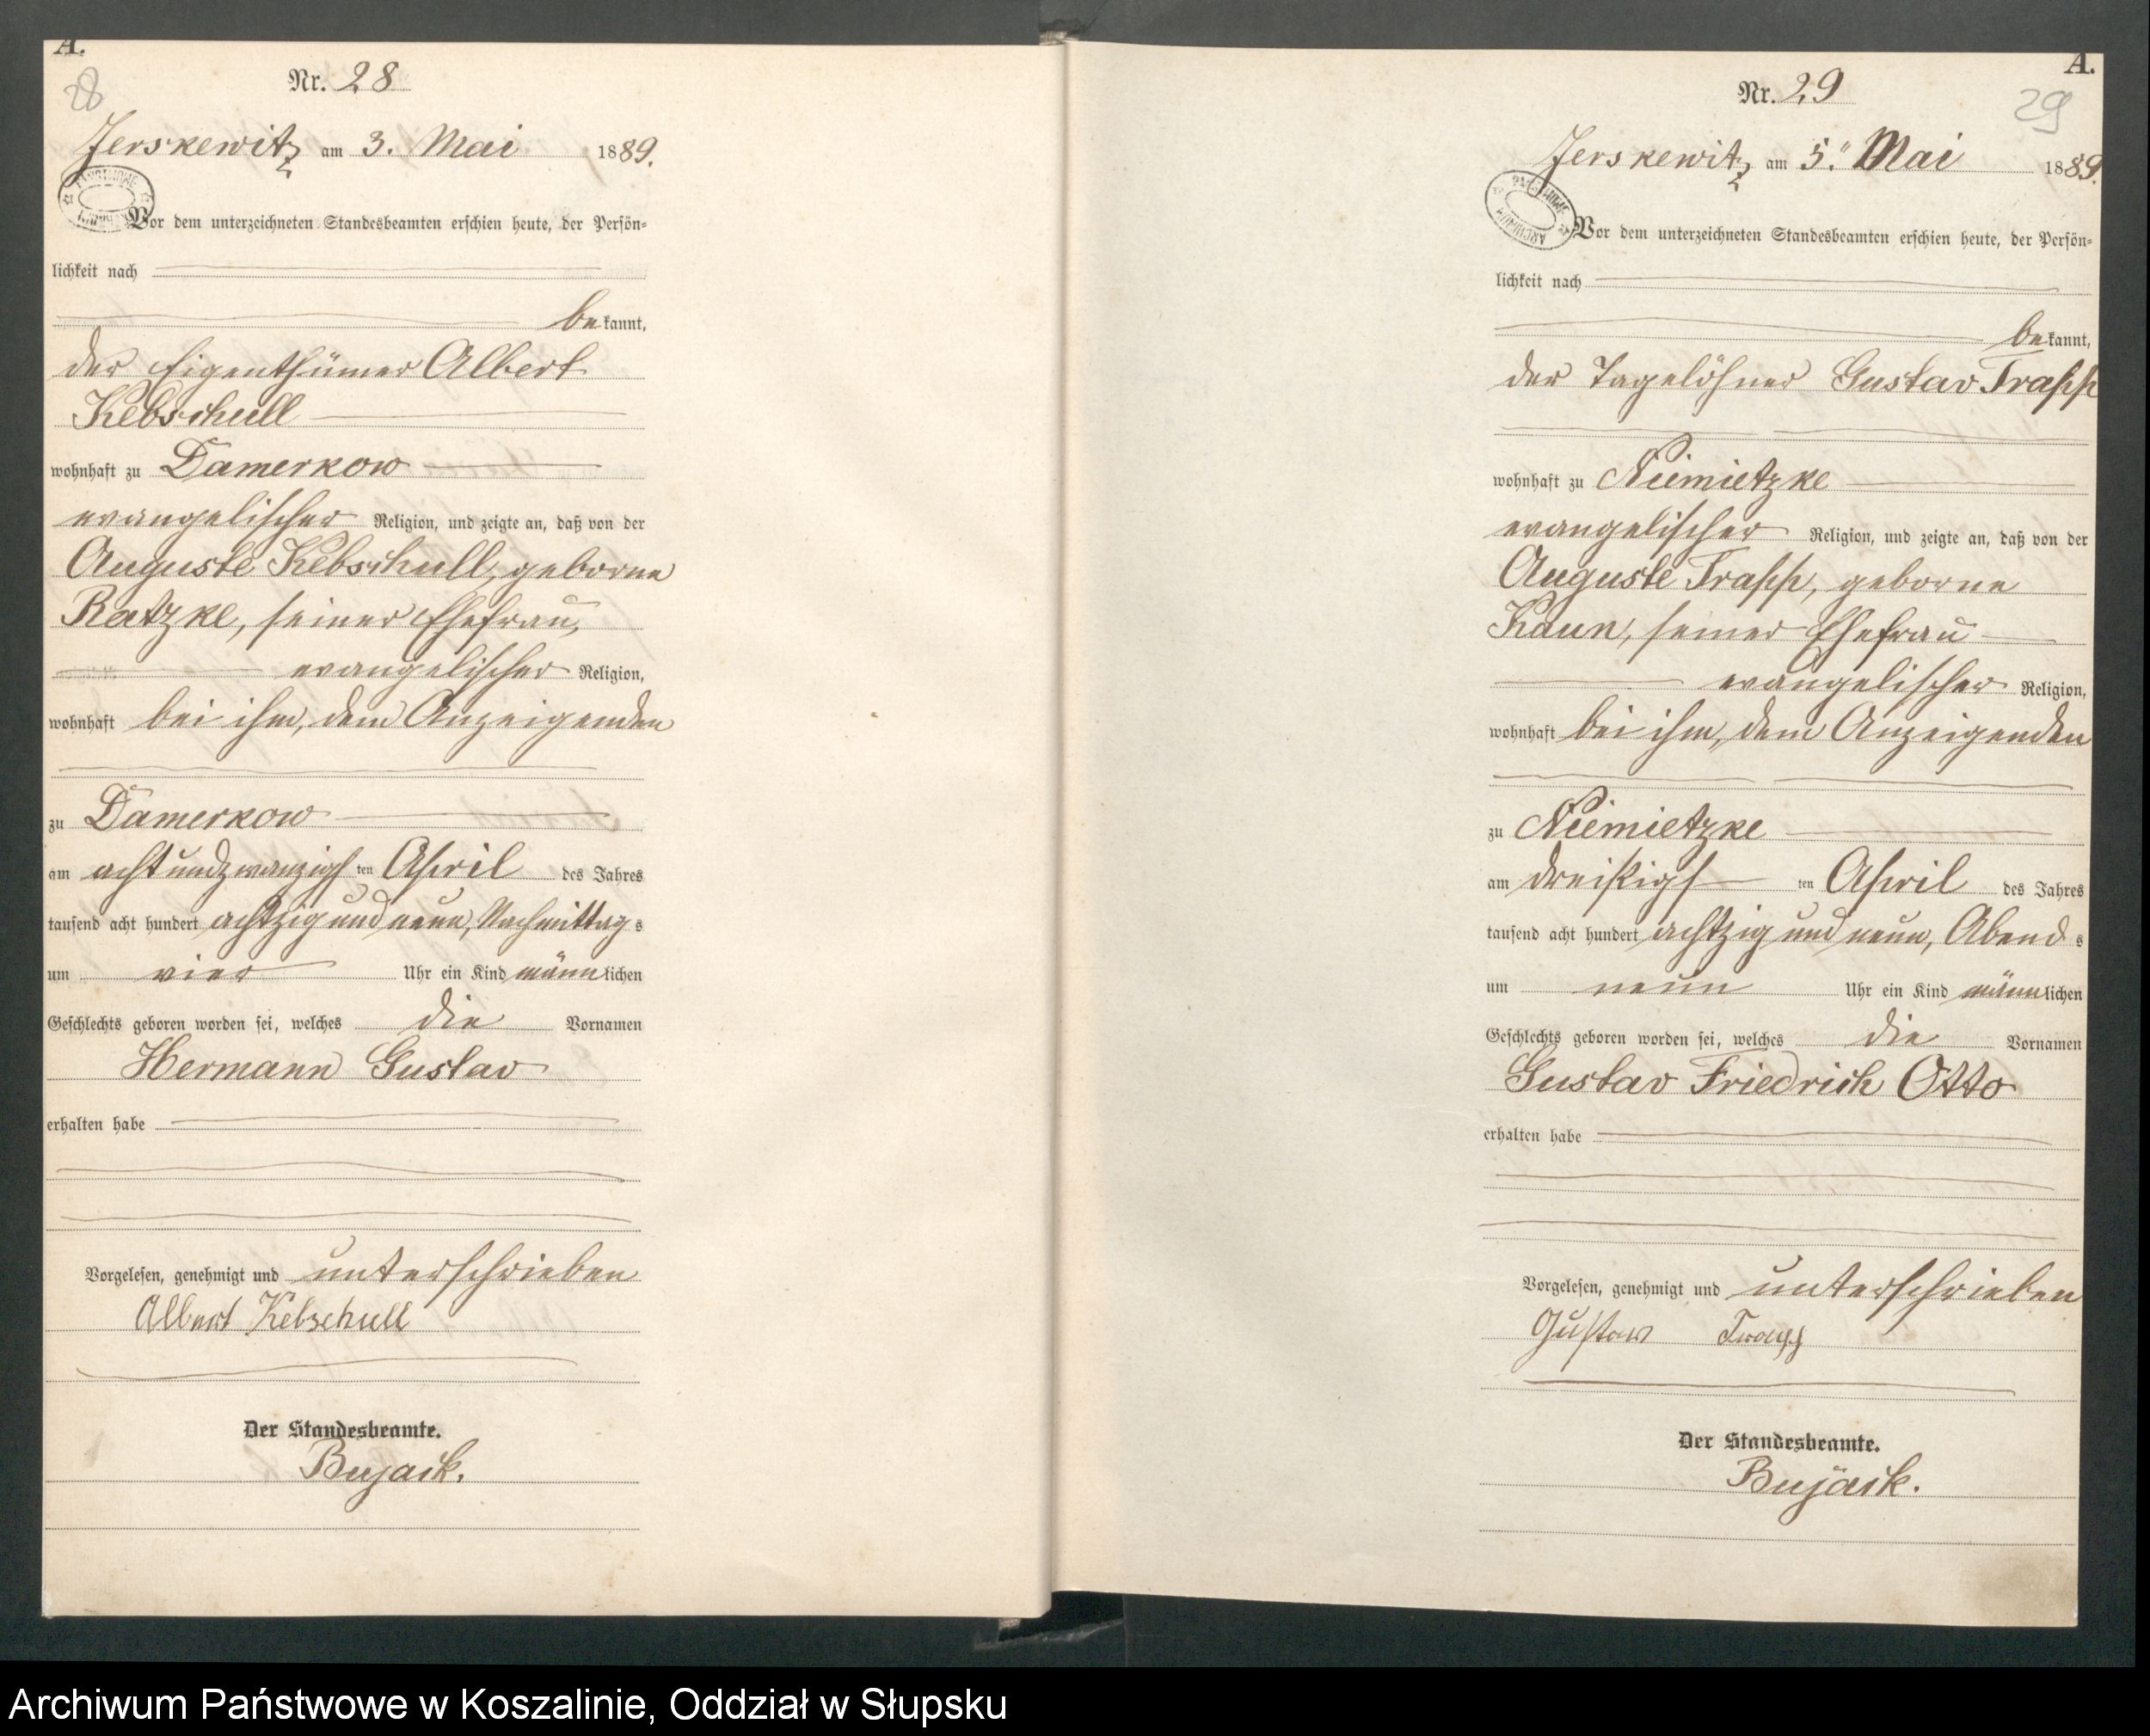 A.
28
Nr. 28
Jerskewitz am 3. Mai 1889.
Vor dem unterzeichneten Standesbeamten erschien heute, der Persön-
lichkeit nach
bekannt,
der Eigenthümer Albert
Kebschull
wohnhaft zu Damerkow
evangelischer Religion, und zeigte an, daß von der
Auguste Kebschull, geborne
Ratzke, seiner Ehefrau,
evangelischer Religion,
wohnhaft bei ihm, dem Anzeigenden
zu Damerkow
am achtundzwanzigsten April des Jahres
tausend acht hundert achtzig und neun, Nachmittags
um vier Uhr ein Kind männlichen
Geschlechts geboren worden sei, welches die Vornamen
Hermann Gustav
erhalten habe
Vorgelesen, genehmigt und unterschrieben
Albert Kebschull
Der Standesbeamte.
Bujack.
A.
29
Nr. 29
Jerskewitz am 5. Mai 1889.
Vor dem unterzeichneten Standesbeamten erschien heute, der Persön-
lichkeit nach
bekannt,
der Tagelöhner Gustav Trapp
wohnhaft zu Niemietzke
evangelischer Religion, und zeigte an, daß von der
Auguste Trapp, geborne
Kaun, seiner Ehefrau
evangelischer Religion,
wohnhaft bei ihm, dem Anzeigenden
zu Niemietzke
am dreißigsten April des Jahres
tausend acht hundert achtzig und neun, Abends
um neun Uhr ein Kind männlichen
Geschlechts geboren worden sei, welches die Vornamen
Gustav Friedrich Otto
erhalten habe
Vorgelesen, genehmigt und unterschrieben
Gustav Trapp
Der Standesbeamte.
Bujack.
Archiwum Państwowe w Koszalinie, Oddział w Słupsku